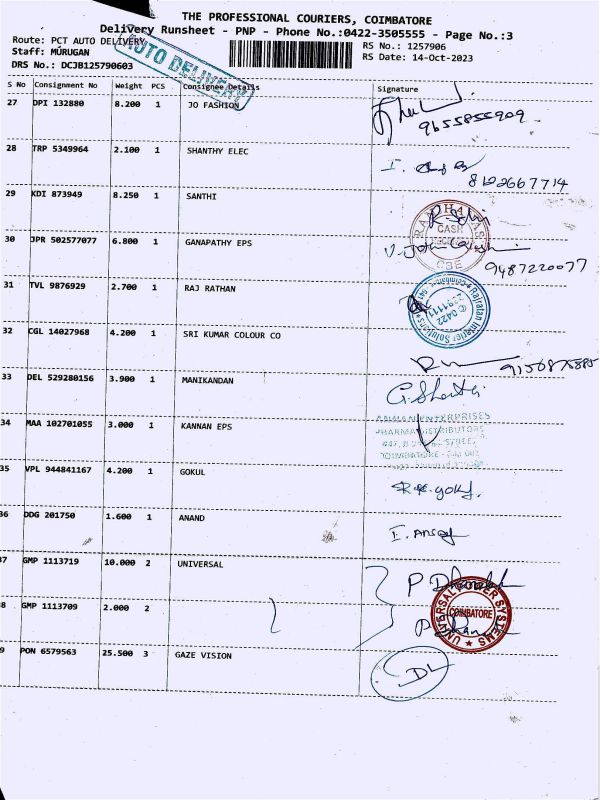 THE PROFESSIONAL COURIERS, COIMBATORE
Delivery Runsheet - PNP - Phone No.:0422-3505555 - Page No.:3
Route: PCT AUTO DELIVERY
RS No.: 1257906
Staff: MURUGAN
RS Date: 14-Oct-2023
DRS No.: DCJB125790603
AUTO DELIVERY
S No Consignment No Weight PCS Consignee Details Signature
27 DPI 132880 8.200 1 JO FASHION
9655855909
28 TRP 5349964 2.100 1 SHANTHY ELEC
8122667714
29 KDI 873949 8.250 1 SANTHI
CASH
CBE
30 JPR 502577077 6.800 1 GANAPATHY EPS
9487220077
31 TVL 9876929 2.700 1 RAJ RATHAN
Rajratan Interior Solutions
32 CGL 14027968 4.200 1 SRI KUMAR COLOUR CO
9150875885
33 DEL 529280156 3.900 1 MANIKANDAN
34 MAA 102701055 3.000 1 KANNAN EPS
ENTERPRISES
PHARMA DISTRIBUTORS
35 VPL 944841167 4.200 1 GOKUL
36 DDG 201750 1.600 1 ANAND
37 GMP 1113719 10.000 2 UNIVERSAL
38 GMP 1113709 2.000 2
UNIVERSAL POWER SYSTEMS
COIMBATORE
39 PON 6579563 25.500 3 GAZE VISION